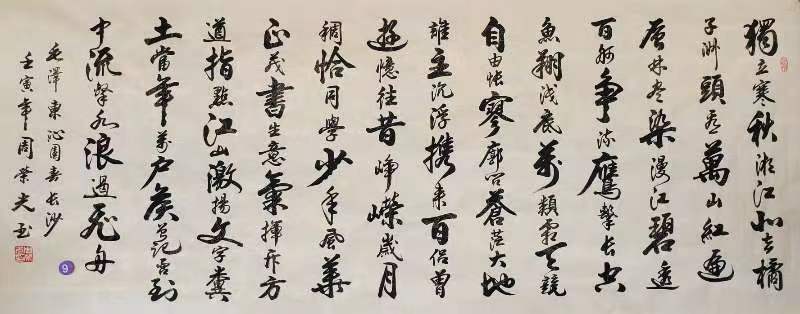 獨立寒秋湘江北去橘
子洲頭看萬山紅遍
层林尽染漫江碧透
百舸争流鷹擊長空
魚翔浅底萬類霜天競
自由悵寥廓问蒼茫大地
誰主沉浮携來百侣曾
遊憶往昔崢嶸歲月
稠恰同學少年風華
正茂書生意氣揮斥方
遒指點江山激揚文字糞
土當年萬户侯曾記否到
中流擊水浪遏飛舟
毛澤東沁園春長沙
壬寅年周荣光
9